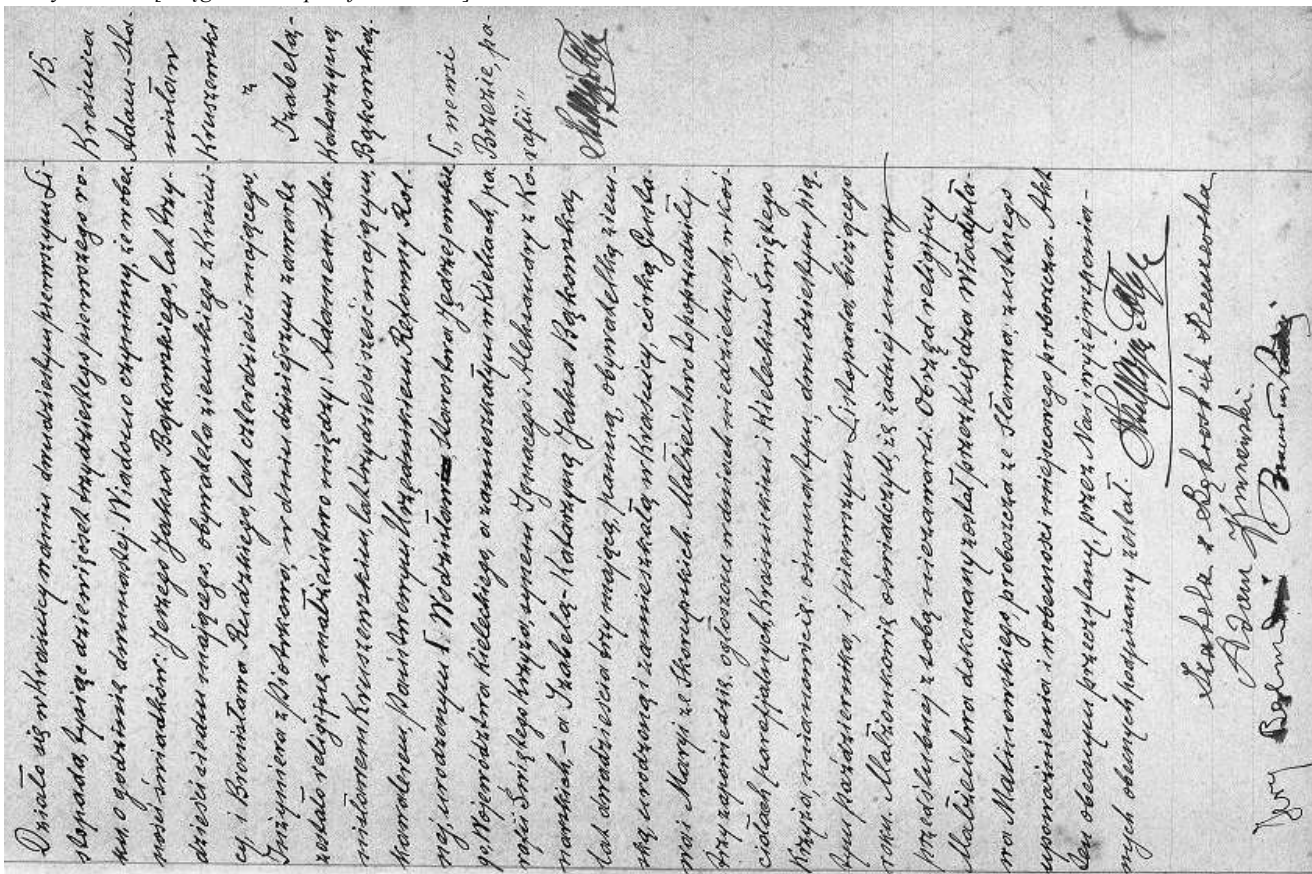 15.
Krasnica
Adam-Sta-
nisław
Kruszewski
z
Izabelą
Katarzyną
Bąkowską
"we wsi
Brzezie, pa-
rafii"
Działo się w Krasnicy dnia dwudziestym pierwszym Li-
stopada, tysiąc dziewięćset trzydziestego pierwszego ro-
ku, o godzinie dwunastej. Wiadomo czynimy, że w obec-
ności świadków: Jerzego Jaksa Bąkowskiego, lat trzy-
dzieści siedm mającego, obywatela ziemskiego z
i Bronisława Rudzkiego, lat czterdzieści mającego,
Inżyniera z Piotrkowa, w dniu dzisiejszym zawarte
zostało religijne małżeństwo między: Adamem-Sta-
nisławem Kruszewskim, lat trzydzieści sześć mającym,
kawalerem, Państwowym Urzędnikiem Reformy Rol-
nej, urodzonym Starostwa Jędrzejowskie-
go Województwa Kieleckiego, a zamieszkałym w Kielcach, pa-
rafii Świętego Krzyża, synem Ignacego i Aleksandry z Ko-
narskich, - a Izabelą-Katarzyną Jaksa Bąkowską,
lat dwadzieścia trzy mającą, panną, obywatelką ziem-
ską, urodzoną i zamieszkałą w Krasnicy, córką Gusta-
wa i Maryi ze Skorupskich. Małżeństwo to poprzedziły
trzy zapowiedzie, ogłoszone w dniach niedzielnych, w koś-
ciołach parafjalnych, Krasnickim i Kieleckim Świętego
Krzyża, mianowicie: ośmnastym, dwudziestym pią-
tym października, i pierwszym Listopada, bieżącego
roku. Małżonkowie oświadczyli, że żadnej umowy
przedślubnej z sobą nie zawarli. Obrząd religijny
Małżeństwa dokonany został przez księdza Władysła-
wa Malinowskiego, proboszcza ze Sławna, z ustnego
upoważnienia i w obecności miejscowego proboszcza. Akt
ten obecnym przeczytany, przez Nas i wyżej wspomnia-
nych obecnych podpisany został.
Izabela z Bąkowskich Kruszewska
Adam Kruszewski